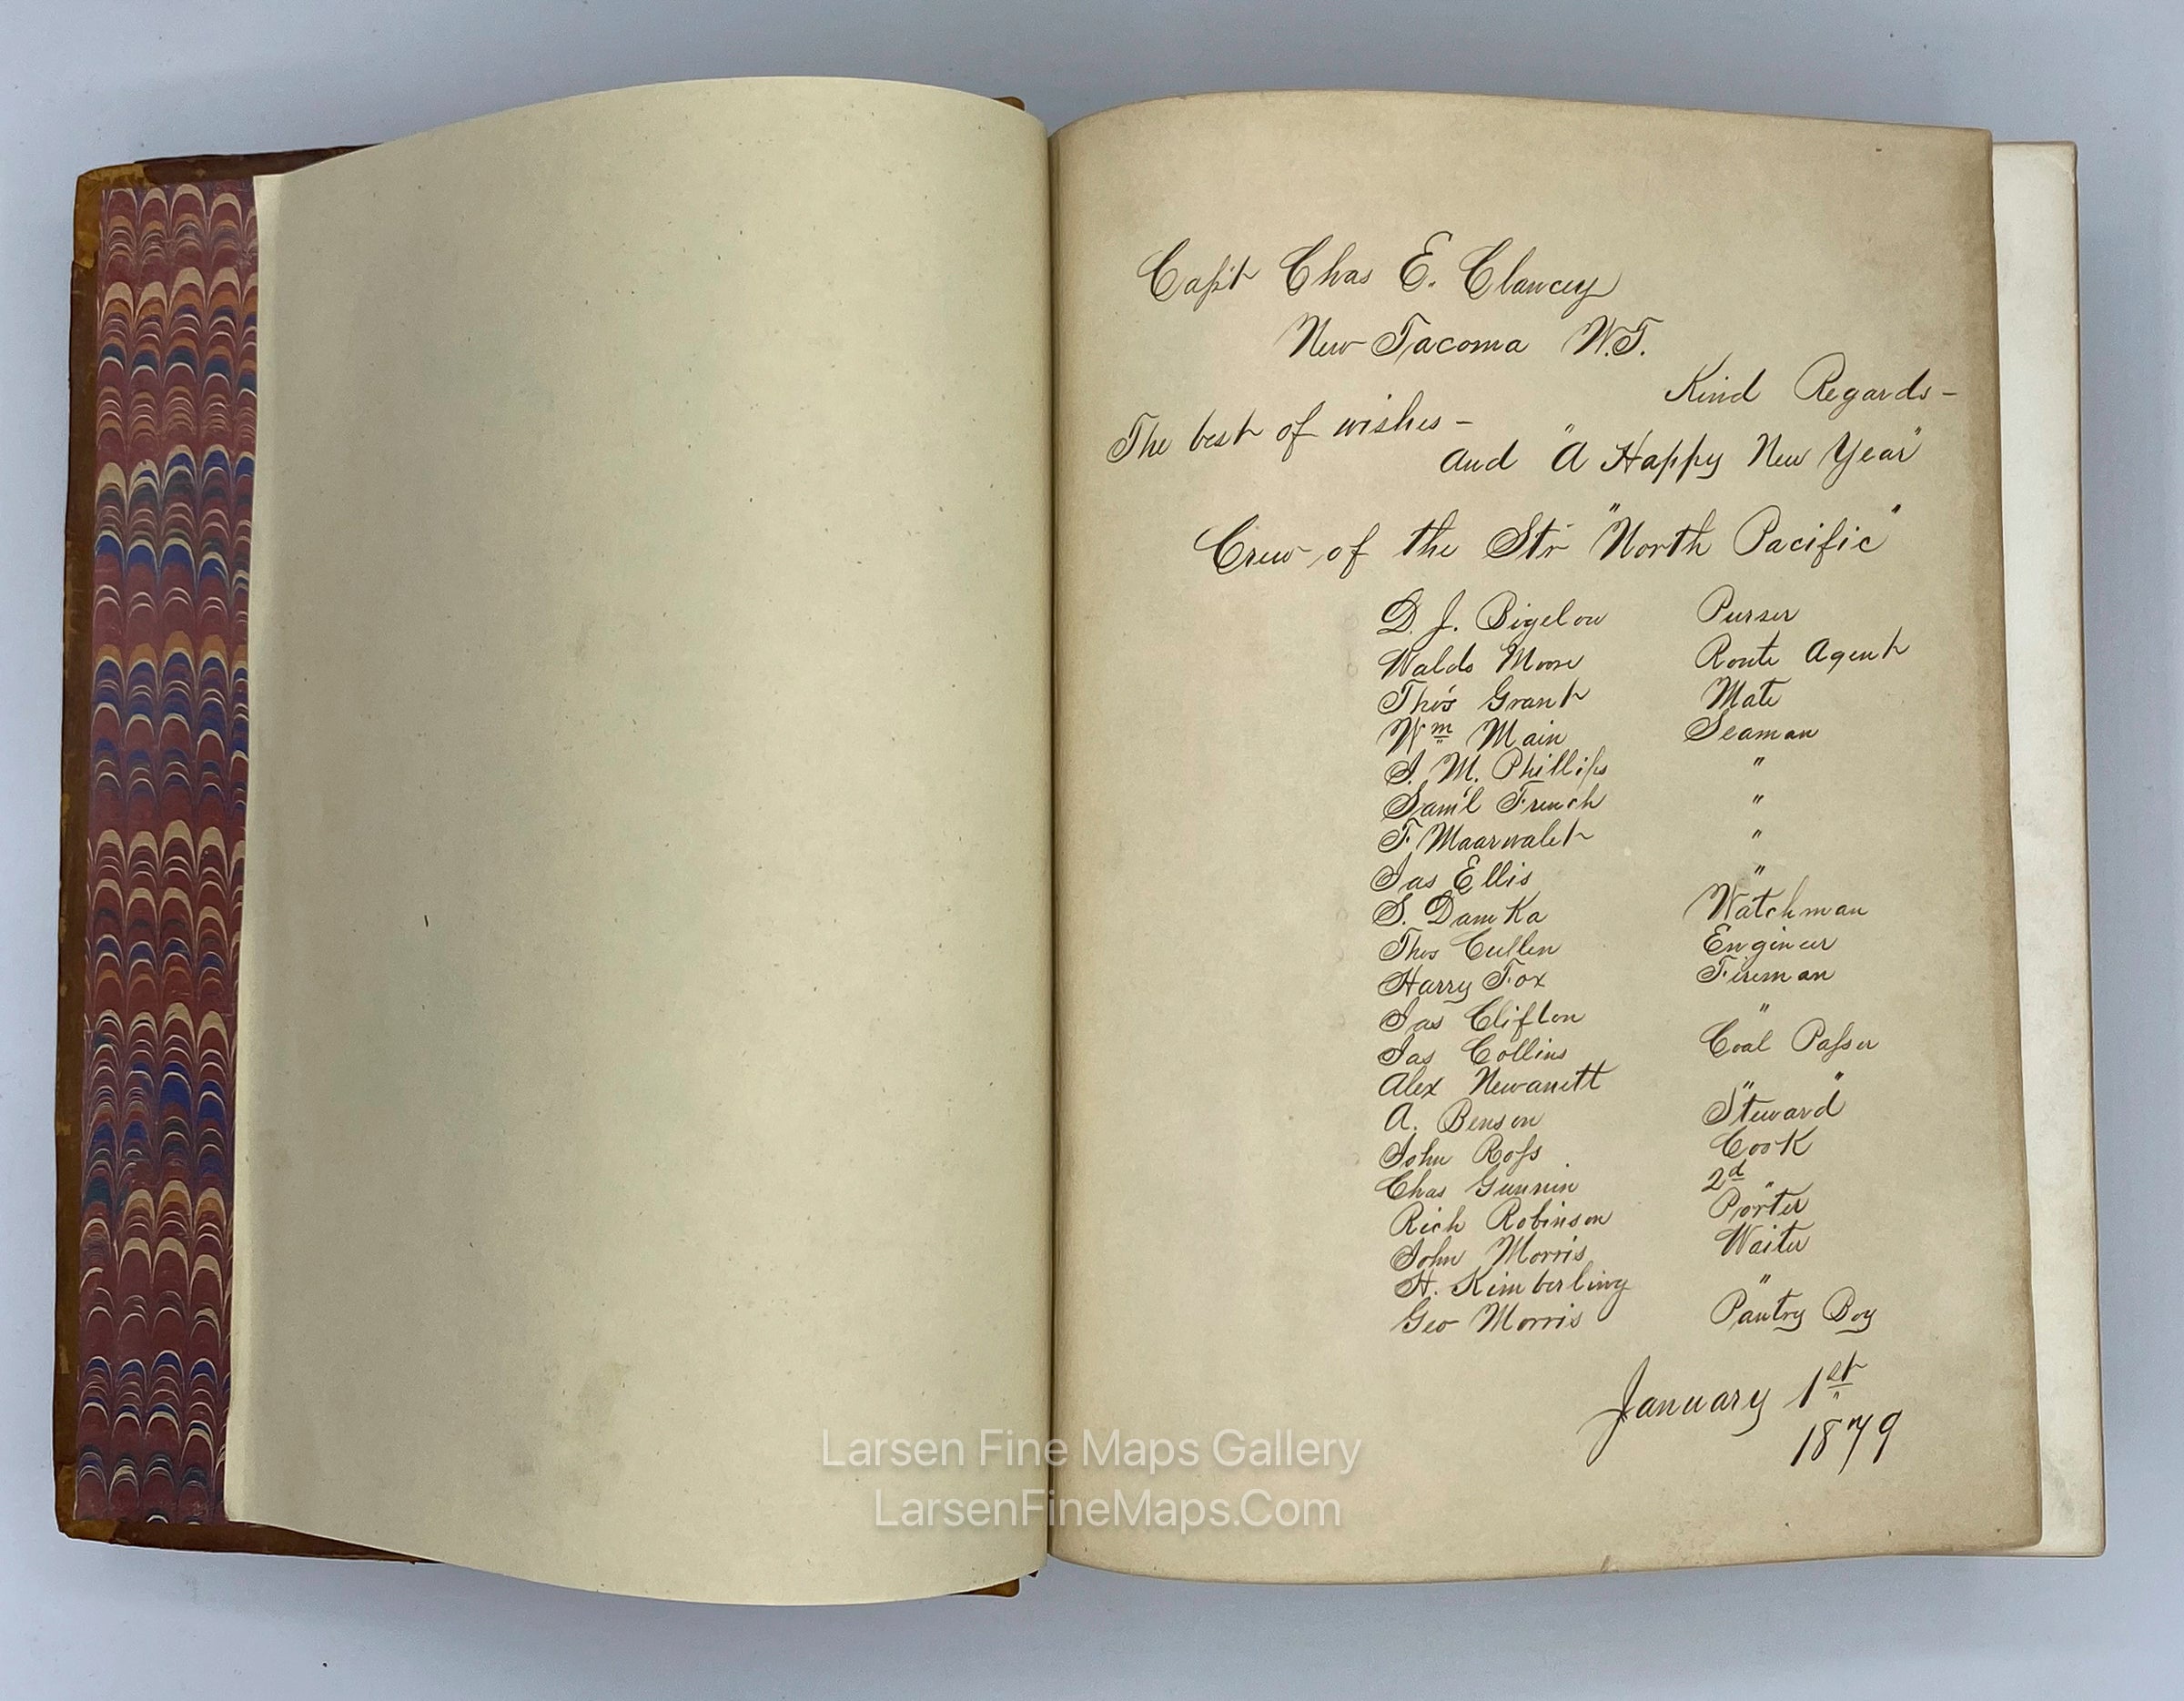 Capt Chas E. Clancey
New Tacoma W.T.
Kind Regards -
The best of wishes -
and "A Happy New Year"
Crew of the Str "North Pacific"
D. J. Bigelow Purser
Waldo Moore Route Agent
Thos Grant Mate
Wm Main Seaman
J. M. Phillips "
Sam'l French "
F. Maarwalet "
Jas Ellis "
S. Damka Watchman
Thos Cullen Engineer
Harry Fox Fireman
Jas Clifton "
Jas Collins Coal Passer
Alex Newanett " "
A. Benson Steward
John Ross Cook
Chas Gunnin 2d "
Rich Robinson Porter
John Morris Waiter
H. Kimberling "
Geo Morris Pantry Boy
January 1st
1879
Larsen Fine Maps Gallery
LarsenFineMaps.Com